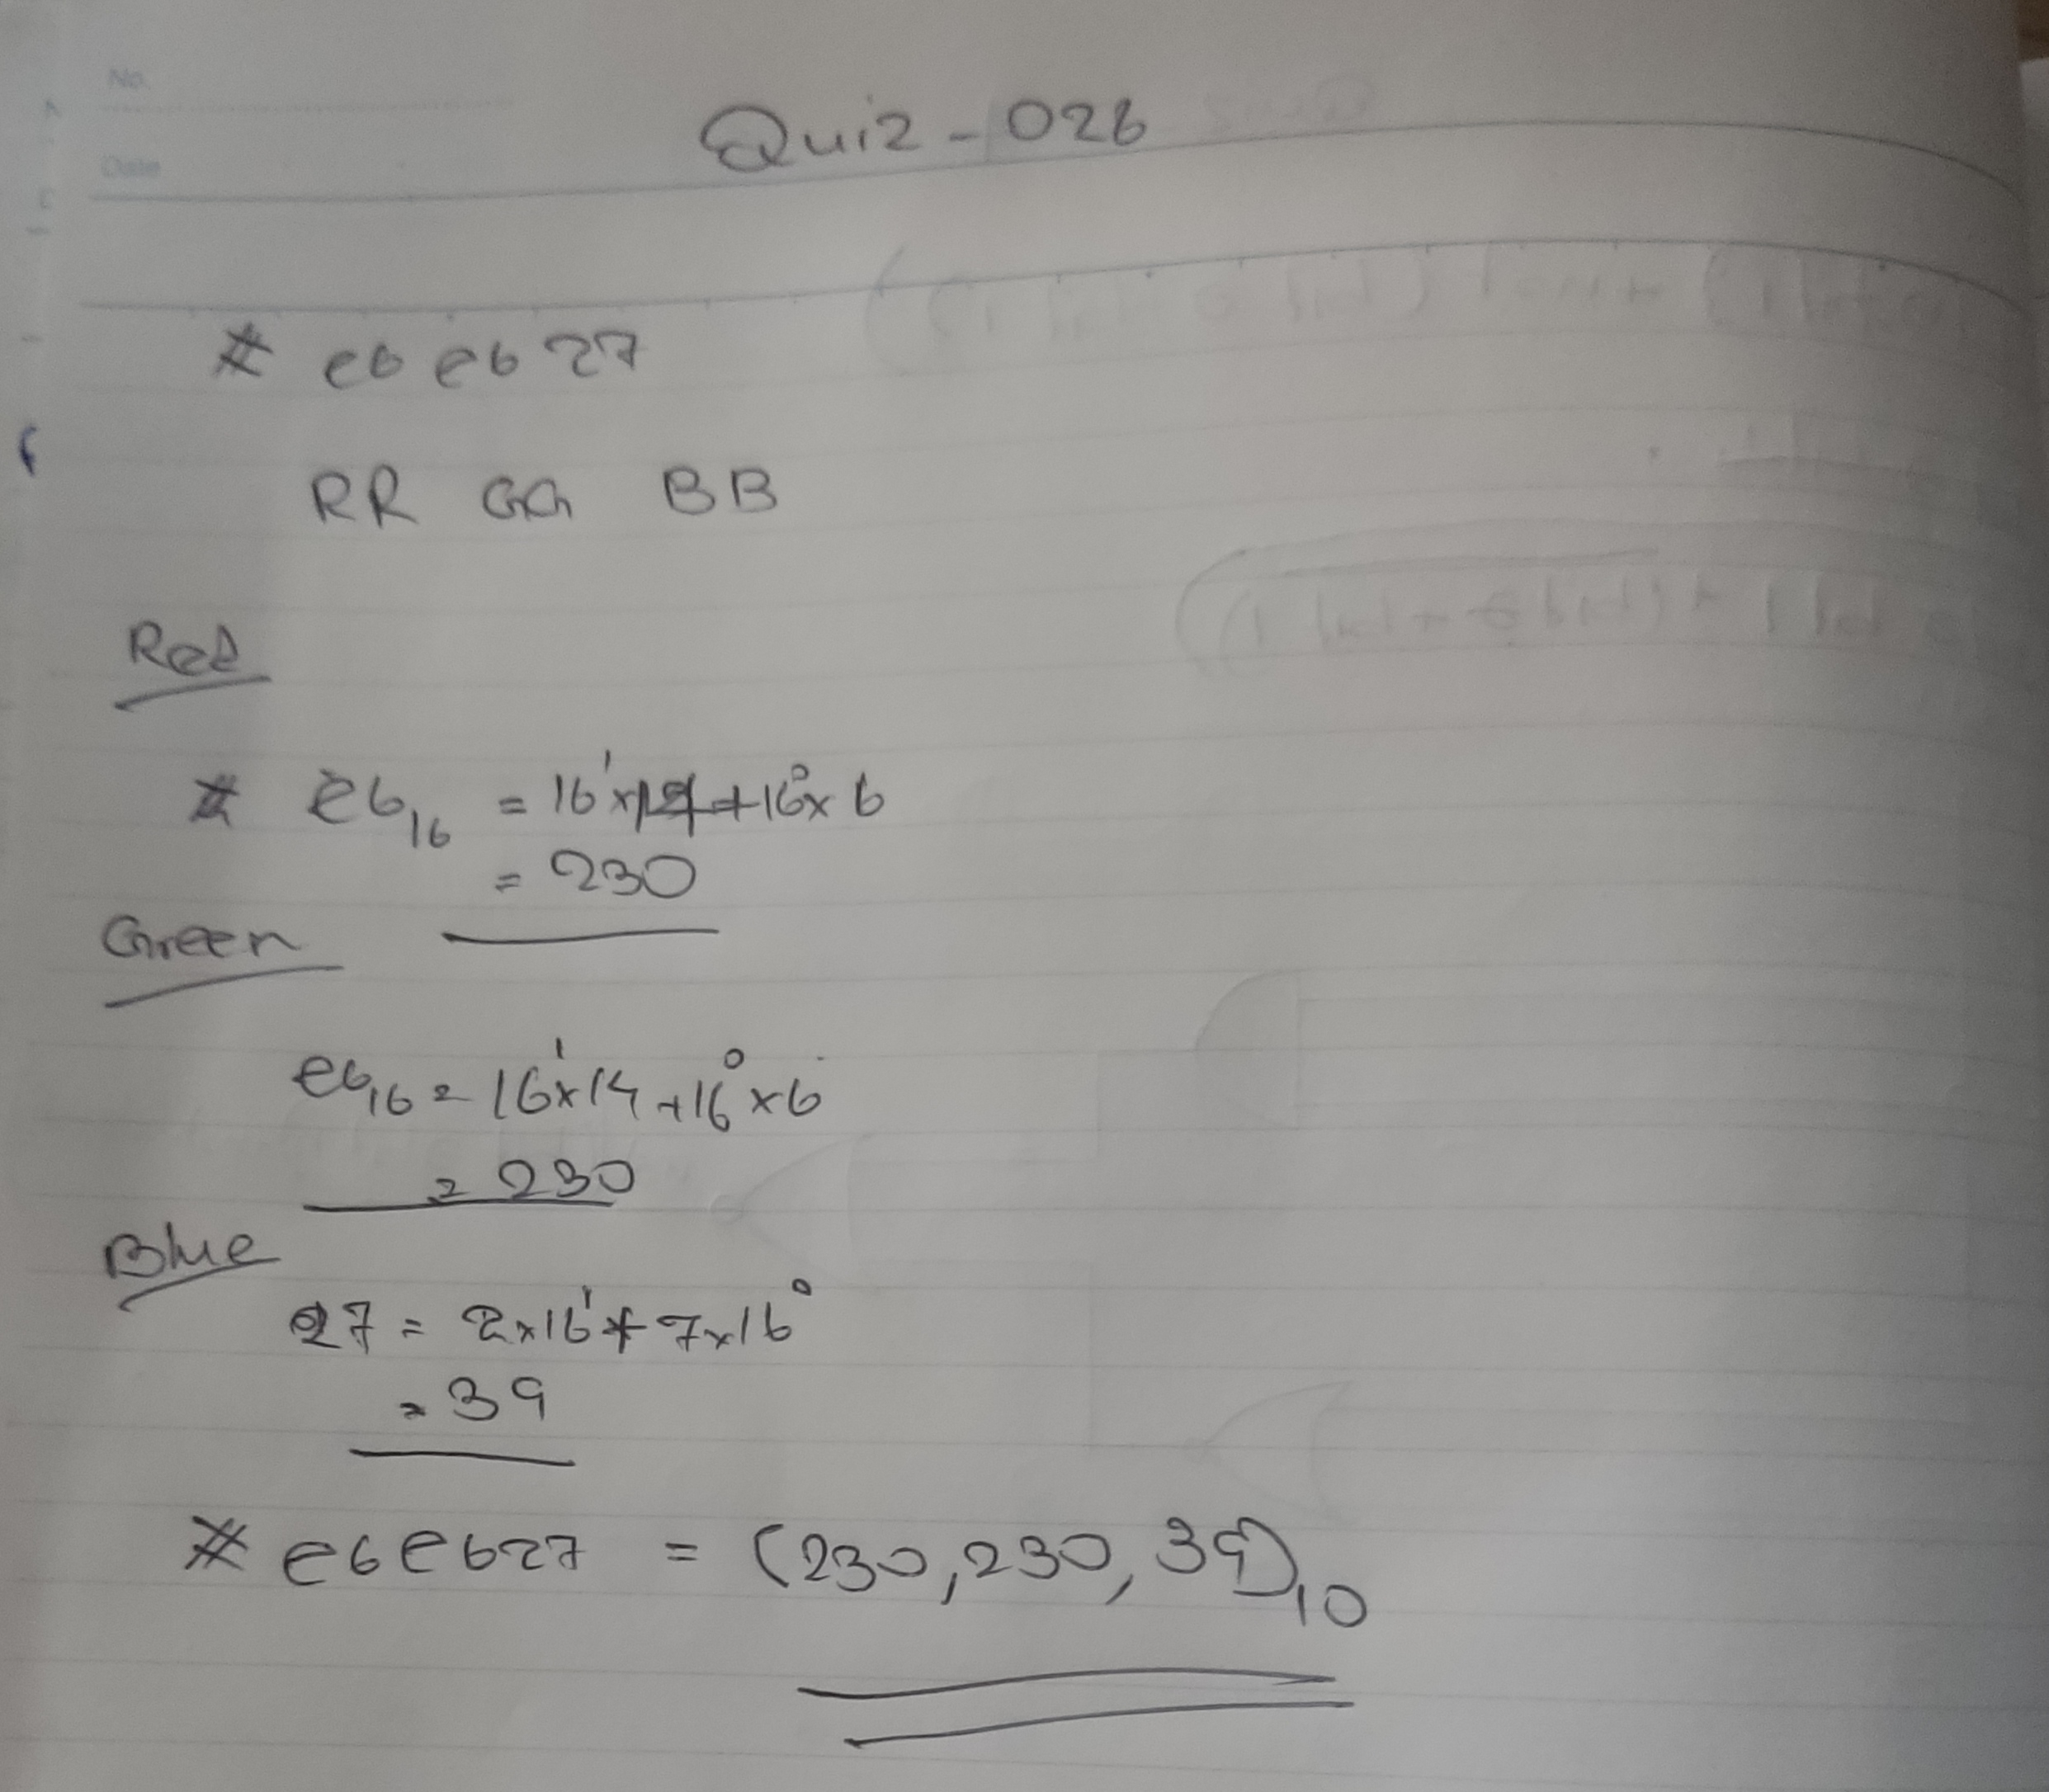 No.
Date
Quiz - 026
# e6 e6 27
RR GG BB
Red
# e6₁₆ = 16¹x14+16⁰x 6
= 230
Green
e6₁₆ = 16¹x14 +16⁰x6
= 230
Blue
27 = 2x16¹+ 7x16⁰
= 39
# e6e627 = (230,230,39)₁₀